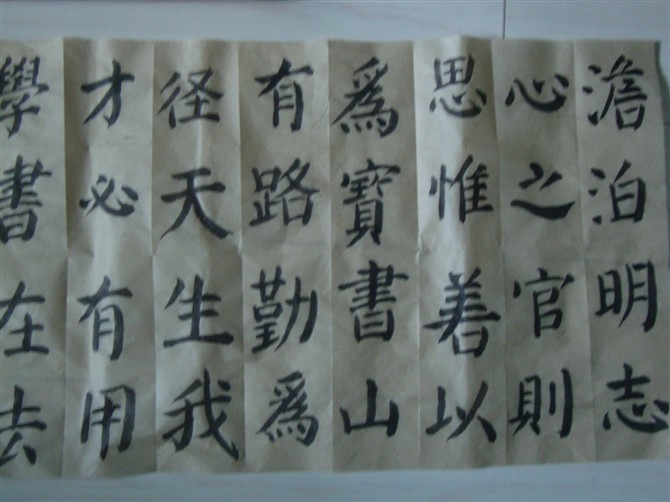 澹泊明志
心之官則
思惟善以
爲寶書山
有路勤爲
径天生我
才必有用
學書在去